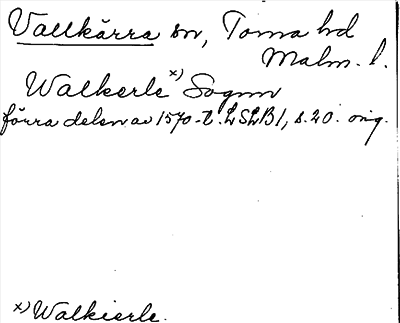 Vallkärra sn, Torna hd
Malm. l.
Walkerle x) Sognn
förra delen av 1570-t. LSLB1, s. 20. orig.
x) Walkierle.